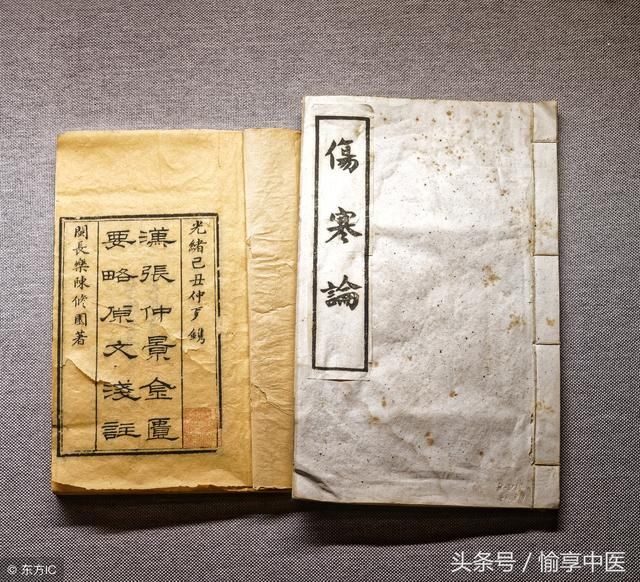 傷寒論
光緒己丑仲夏鐫
漢張仲景金匱
要略原文淺註
閩長樂陳修園著
© 东方IC
头条号／愉享中医